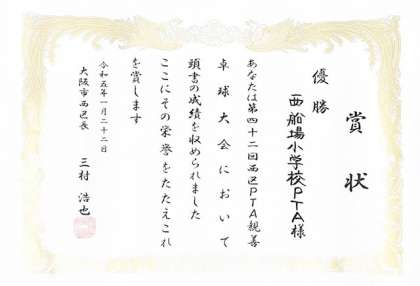 賞状
優勝
西船場小学校PTA様
あなたは第四十二回西区PTA親善
卓球大会において
頭書の成績を収められました
ここにその栄誉をたたえこれ
を賞します
令和五年一月二十二日
大阪市西区長
三村浩也